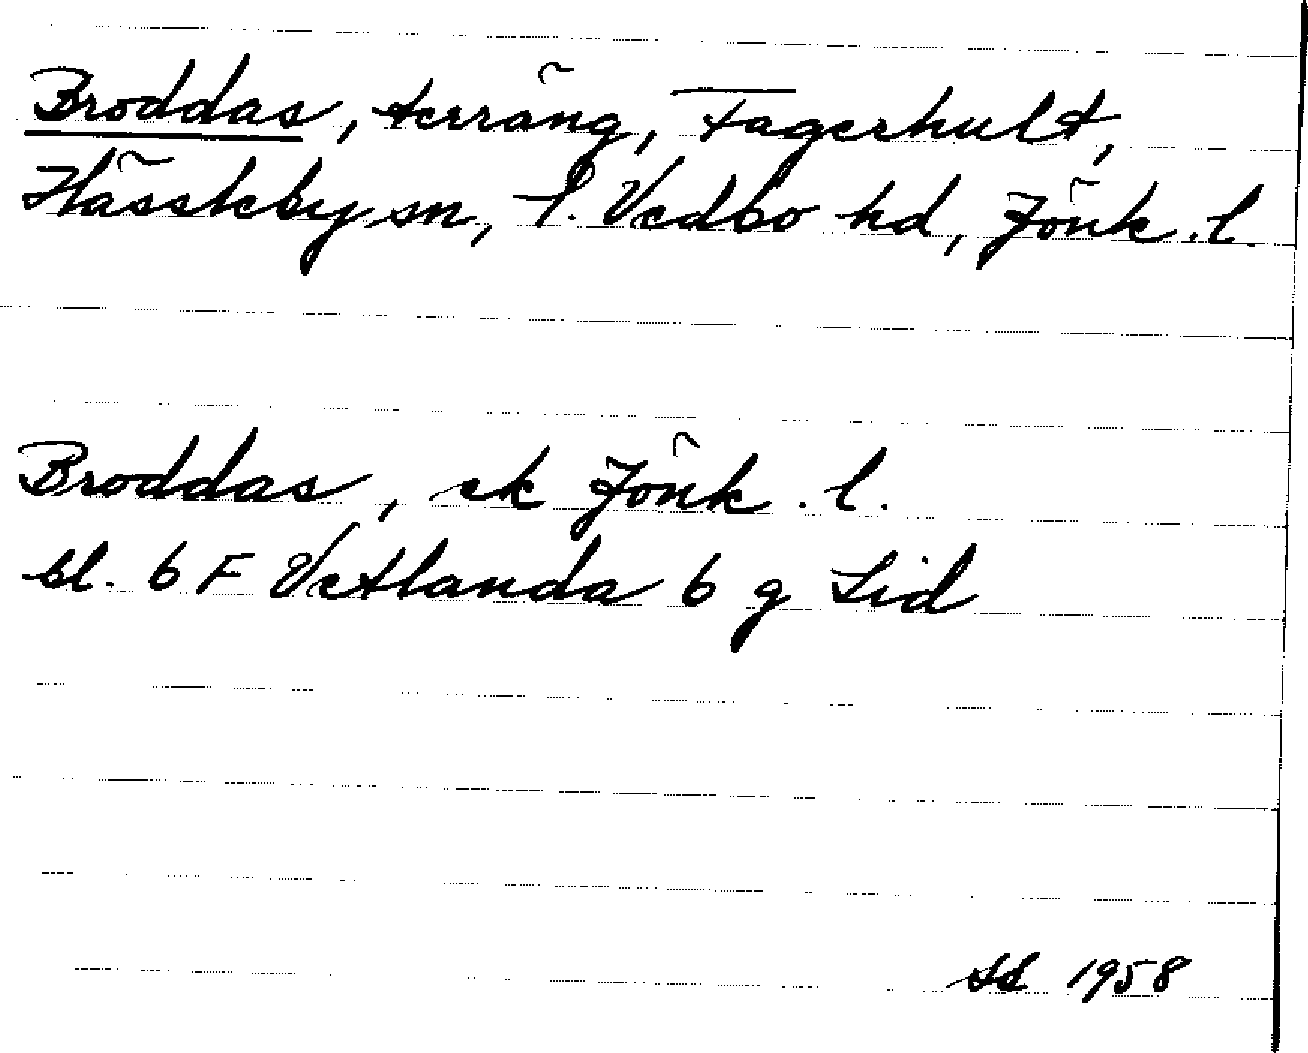 Broddas, terräng, Fagerhult,
Hässleby sn, S. Vedbo hd, Jönk. l.
Broddas, ek Jönk. l.
bl. 6 F Vetlanda 6 g Lid
1958